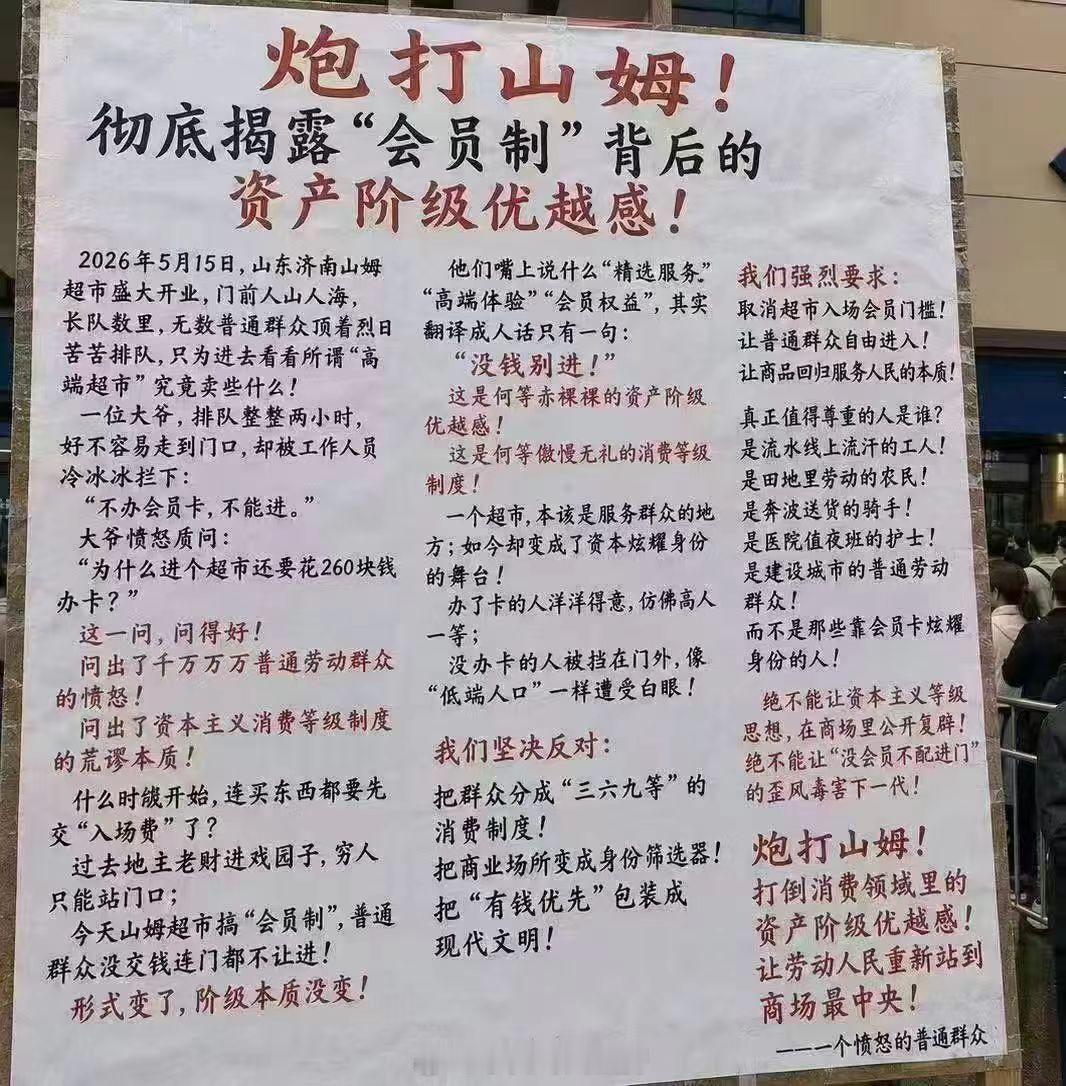 炮打山姆！
彻底揭露“会员制”背后的
资产阶级优越感！
2026年5月15日，山东济南山姆
超市盛大开业，门前人山人海，
长队数里，无数普通群众顶着烈日
苦苦排队，只为进去看看所谓“高
端超市”究竟卖些什么！
一位大爷，排队整整两小时，
好不容易走到门口，却被工作人员
冷冰冰拦下：
“不办会员卡，不能进。”
大爷愤怒质问：
“为什么进个超市还要花260块钱
办卡？”
这一问，问得好！
问出了千万万万普通劳动群众
的愤怒！
问出了资本主义消费等级制度
的荒谬本质！
什么时开始，连买东西都要先
交“入场费”了？
过去地主老财进戏园子，穷人
只能站门口；
今天山姆超市搞“会员制”，普通
群众没交钱连门都不让进！
形式变了，阶级本质没变！
他们嘴上说什么“精选服务”
“高端体验”“会员权益”，其实
翻译成人话只有一句：
“没钱别进！”
这是何等赤裸裸的资产阶级
优越感！
这是何等傲慢无礼的消费等级
制度！
一个超市，本该是服务群众的地
方；如今却变成了资本炫耀身份
的舞台！
办了卡的人洋洋得意，仿佛高人
一等；
没办卡的人被挡在门外，像
“低端人口”一样遭受白眼！
我们坚决反对：
把群众分成“三六九等”的
消费制度！
把商业场所变成身份筛选器！
把“有钱优先”包装成
现代文明！
我们强烈要求：
取消超市入场会员门槛！
让普通群众自由进入！
让商品回归服务人民的本质！
真正值得尊重的人是谁？
是流水线上流汗的工人！
是田地里劳动的农民！
是奔波送货的骑手！
是医院值夜班的护士！
是建设城市的普通劳动
群众！
而不是那些靠会员卡炫耀
身份的人！
绝不能让资本主义等级
思想，在商场里公开复辟！
绝不能让“没会员不配进门”
的歪风毒害下一代！
炮打山姆！
打倒消费领域里的
资产阶级优越感！
让劳动人民重新站到
商场最中央！
——一个愤怒的普通群众